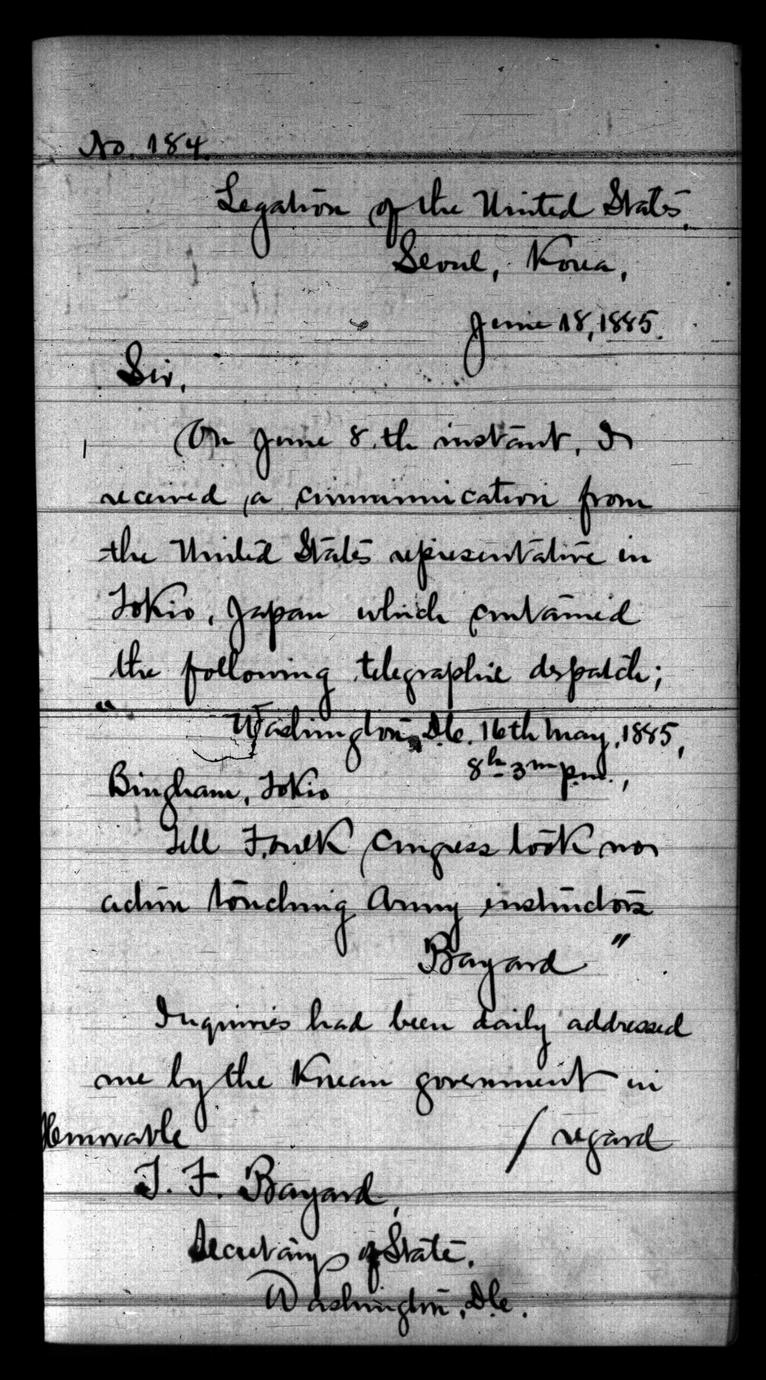 No. 184.
Legation of the United States.
Seoul, Korea,
June 18, 1885.
Sir,
On June 8.th instant, I
received a communication from
the United States representative in
Tokio, Japan which contained
the following telegraphic despatch;
" Washington, D.C. 16th May, 1885,
8h 3m p.m.,
Bingham, Tokio
Tell Foulk Congress took no
action touching Army instructors
Bayard "
Inquiries had been daily addressed
me by the Korean government in
/ regard
Honorable
T. F. Bayard,
Secretary of State,
Washington, D.C.